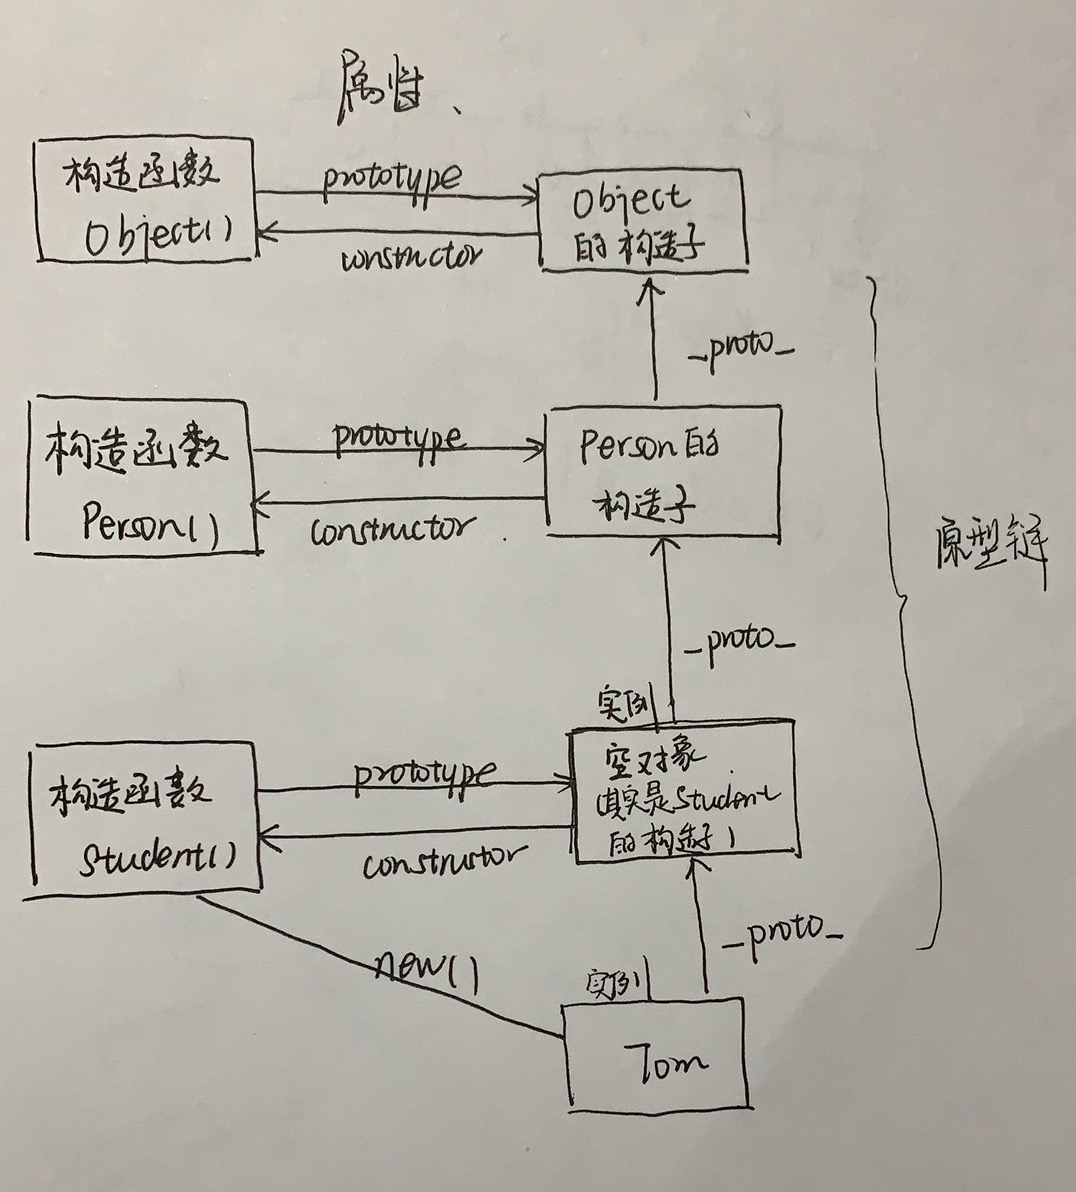 属性、
构造函数
Object()
prototype
constructor
Object
的构造子
_proto_
构造函数
Person()
prototype
constructor
Person的
构造子
原型链
_proto_
实例
构造函数
Student()
prototype
constructor
空对象
(其实是Student
的构造子)
_proto_
new()
实例
Tom